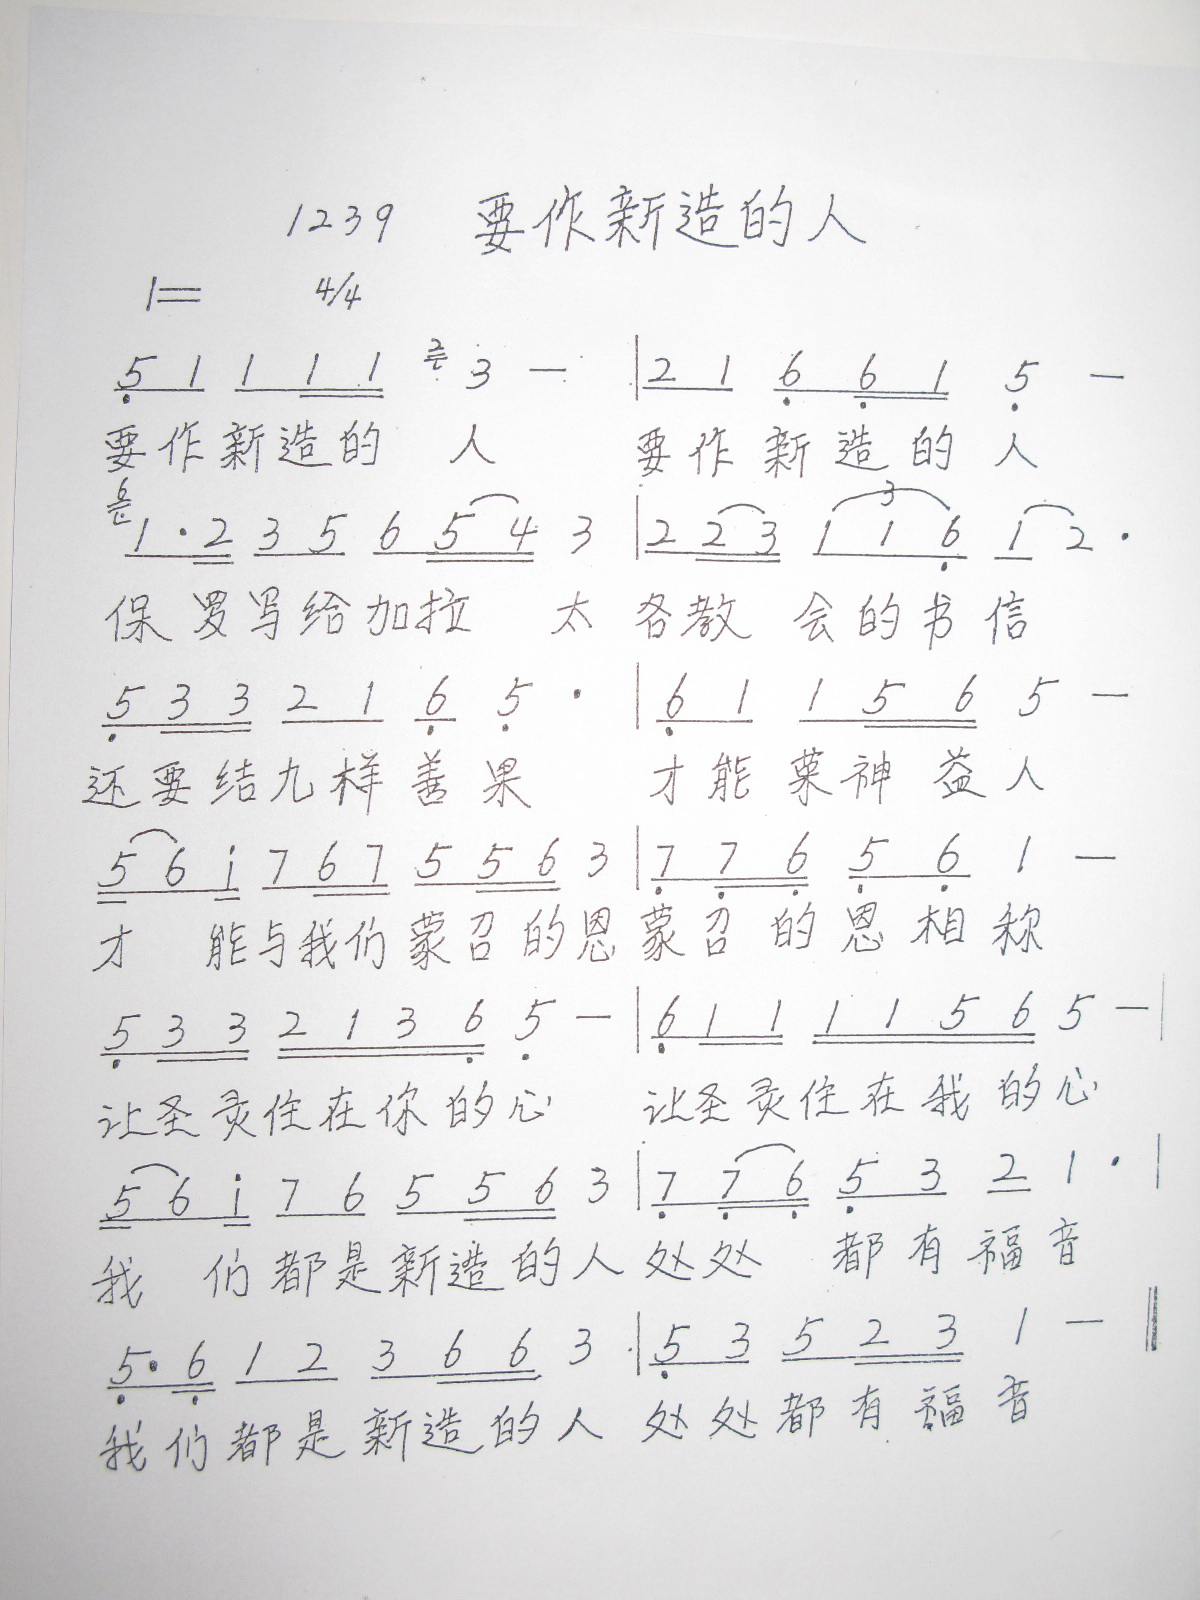 1239 要作新造的人
1= 4/4
5 1 1 1 1 2 3 — | 2 1 6 6 1 5 —
要作新造的 人 要作新造的人
6 1 · 2 3 5 6 5 4 3 | 2 2 3 1 1 6 1 2 ·
保罗写给加拉 太 各教会的书信
5 3 3 2 1 6 5 · | 6 1 1 5 6 5 —
还要结九样善果 才能荣神益人
5 6 i 7 6 7 5 5 6 3 | 7 7 6 5 6 1 —
才 能与我们蒙召的恩 蒙召的恩相称
5 3 3 2 1 3 6 5 — | 6 1 1 1 1 5 6 5 — |
让圣灵住在你的心 让圣灵住在我的心
5 6 i 7 6 5 5 6 3 | 7 7 6 5 3 2 1 · |
我 们都是新造的人 处处 都有福音
5 · 6 1 2 3 6 6 3 | 5 3 5 2 3 1 — ||
我们都是新造的人 处处都有福音